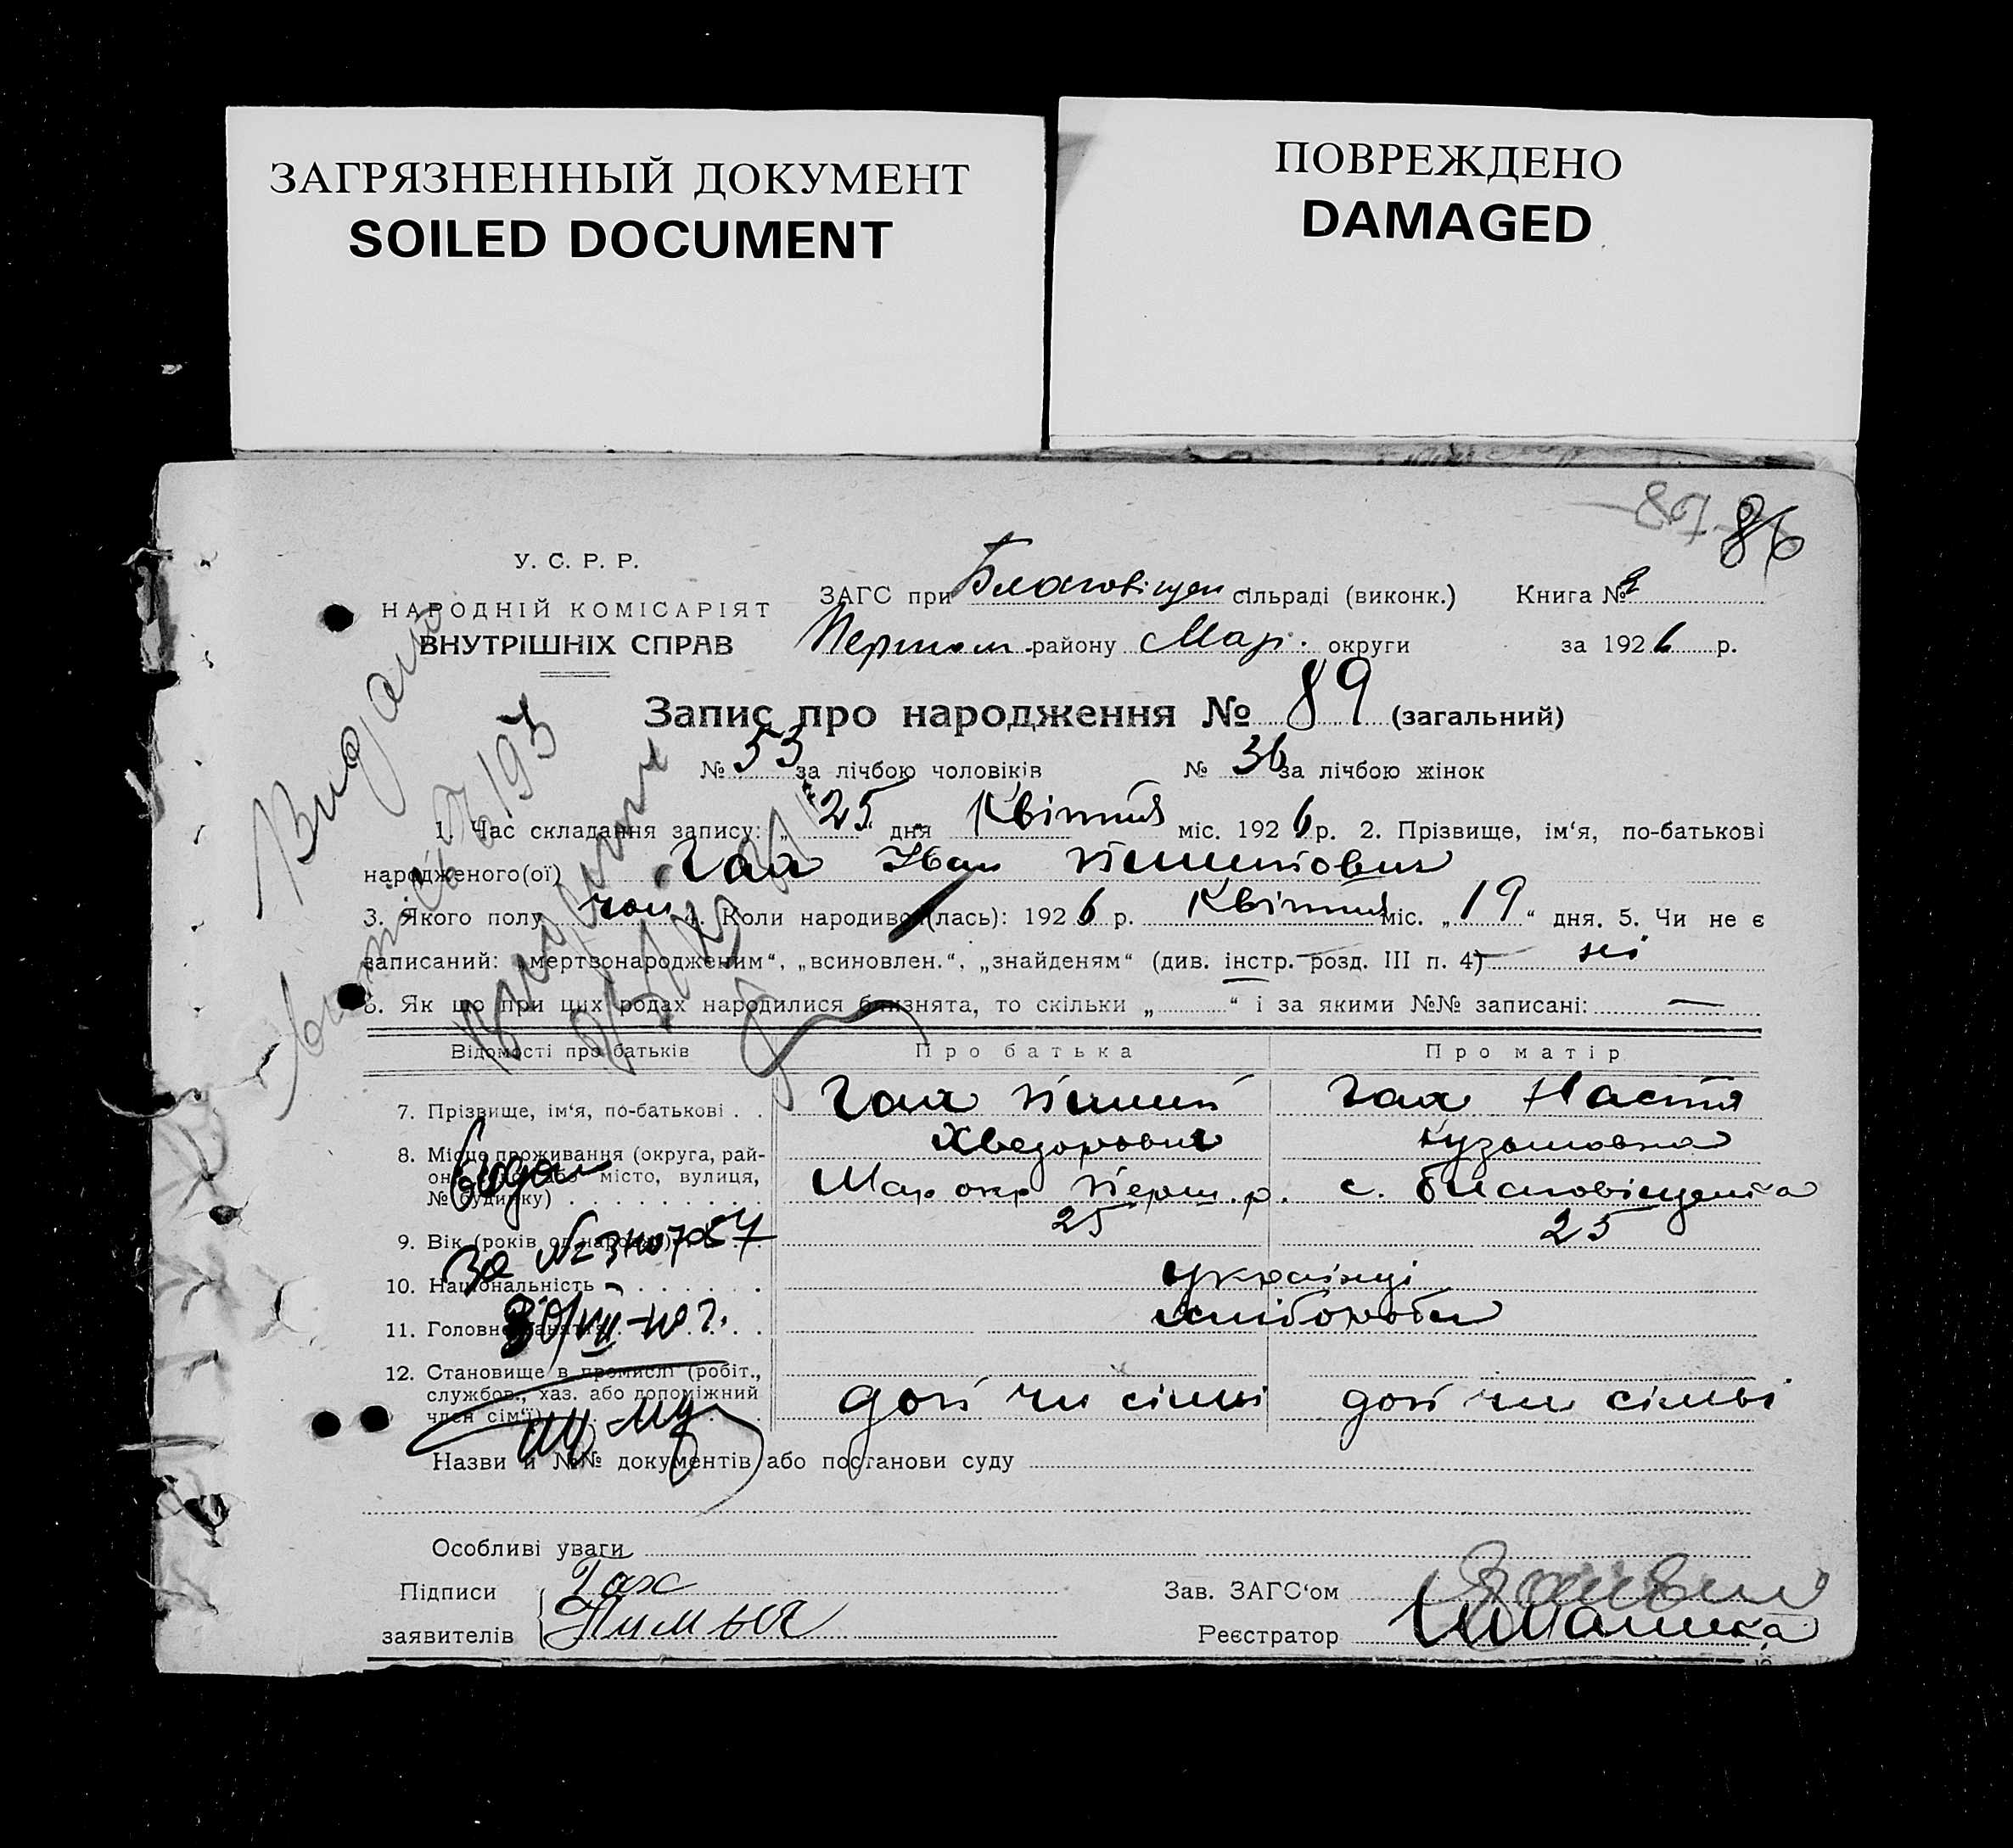 ЗАГРЯЗНЕННЫЙ ДОКУМЕНТ
SOILED DOCUMENT
ПОВРЕЖДЕНО
DAMAGED
87 86
У. С. Р. Р.
НАРОДНІЙ КОМІСАРІЯТ
ВНУТРІШНІХ СПРАВ
ЗАГС при Благовіщен сільраді (виконк.) Книга №
Першом. району Мар. округи за 1926 р.
Запис про народження № 89 (загальний)
№ 53 за лічбою чоловіків № 36 за лічбою жінок
1. Час складання запису: „25“ дня Квітня міс. 1926 р. 2. Прізвище, ім‘я, по-батькові
народженого(ої) Гах Іван
3. Якого полу чол 4. Коли народився(лась): 1926 р. Квітня міс. „19“ дня. 5. Чи не є
записаний: „мертвонародженим“, „всиновлен.“, „знайденям“ (див. інстр. розд. III п. 4) ні
6. Як що при цих родах народилися близнята, то скільки „ “ і за якими №№ записані: —
Відомості про батьків Про батька Про матір
7. Прізвище, ім‘я, по-батькові . . Гах Гах Настя
Хведорович Кузьмовна
8. Місце проживання (округа, рай-
он, або місто, вулиця,
№ будинку) Мар окр Перш. р. с. Благовіщенка
9. Вік (років од народж.) 25 25
10. Національність українці
11. Головне заняття хлібороби
12. Становище в промислі (робіт.,
службов., хаз. або допоміжний
член сім‘ї) доп чл сімьі доп чл сімьі
Назви й №№ документів або постанови суду
Особливі уваги
Підписи Гах
заявителів
Зав. ЗАГС‘ом
Реєстратор
Видано